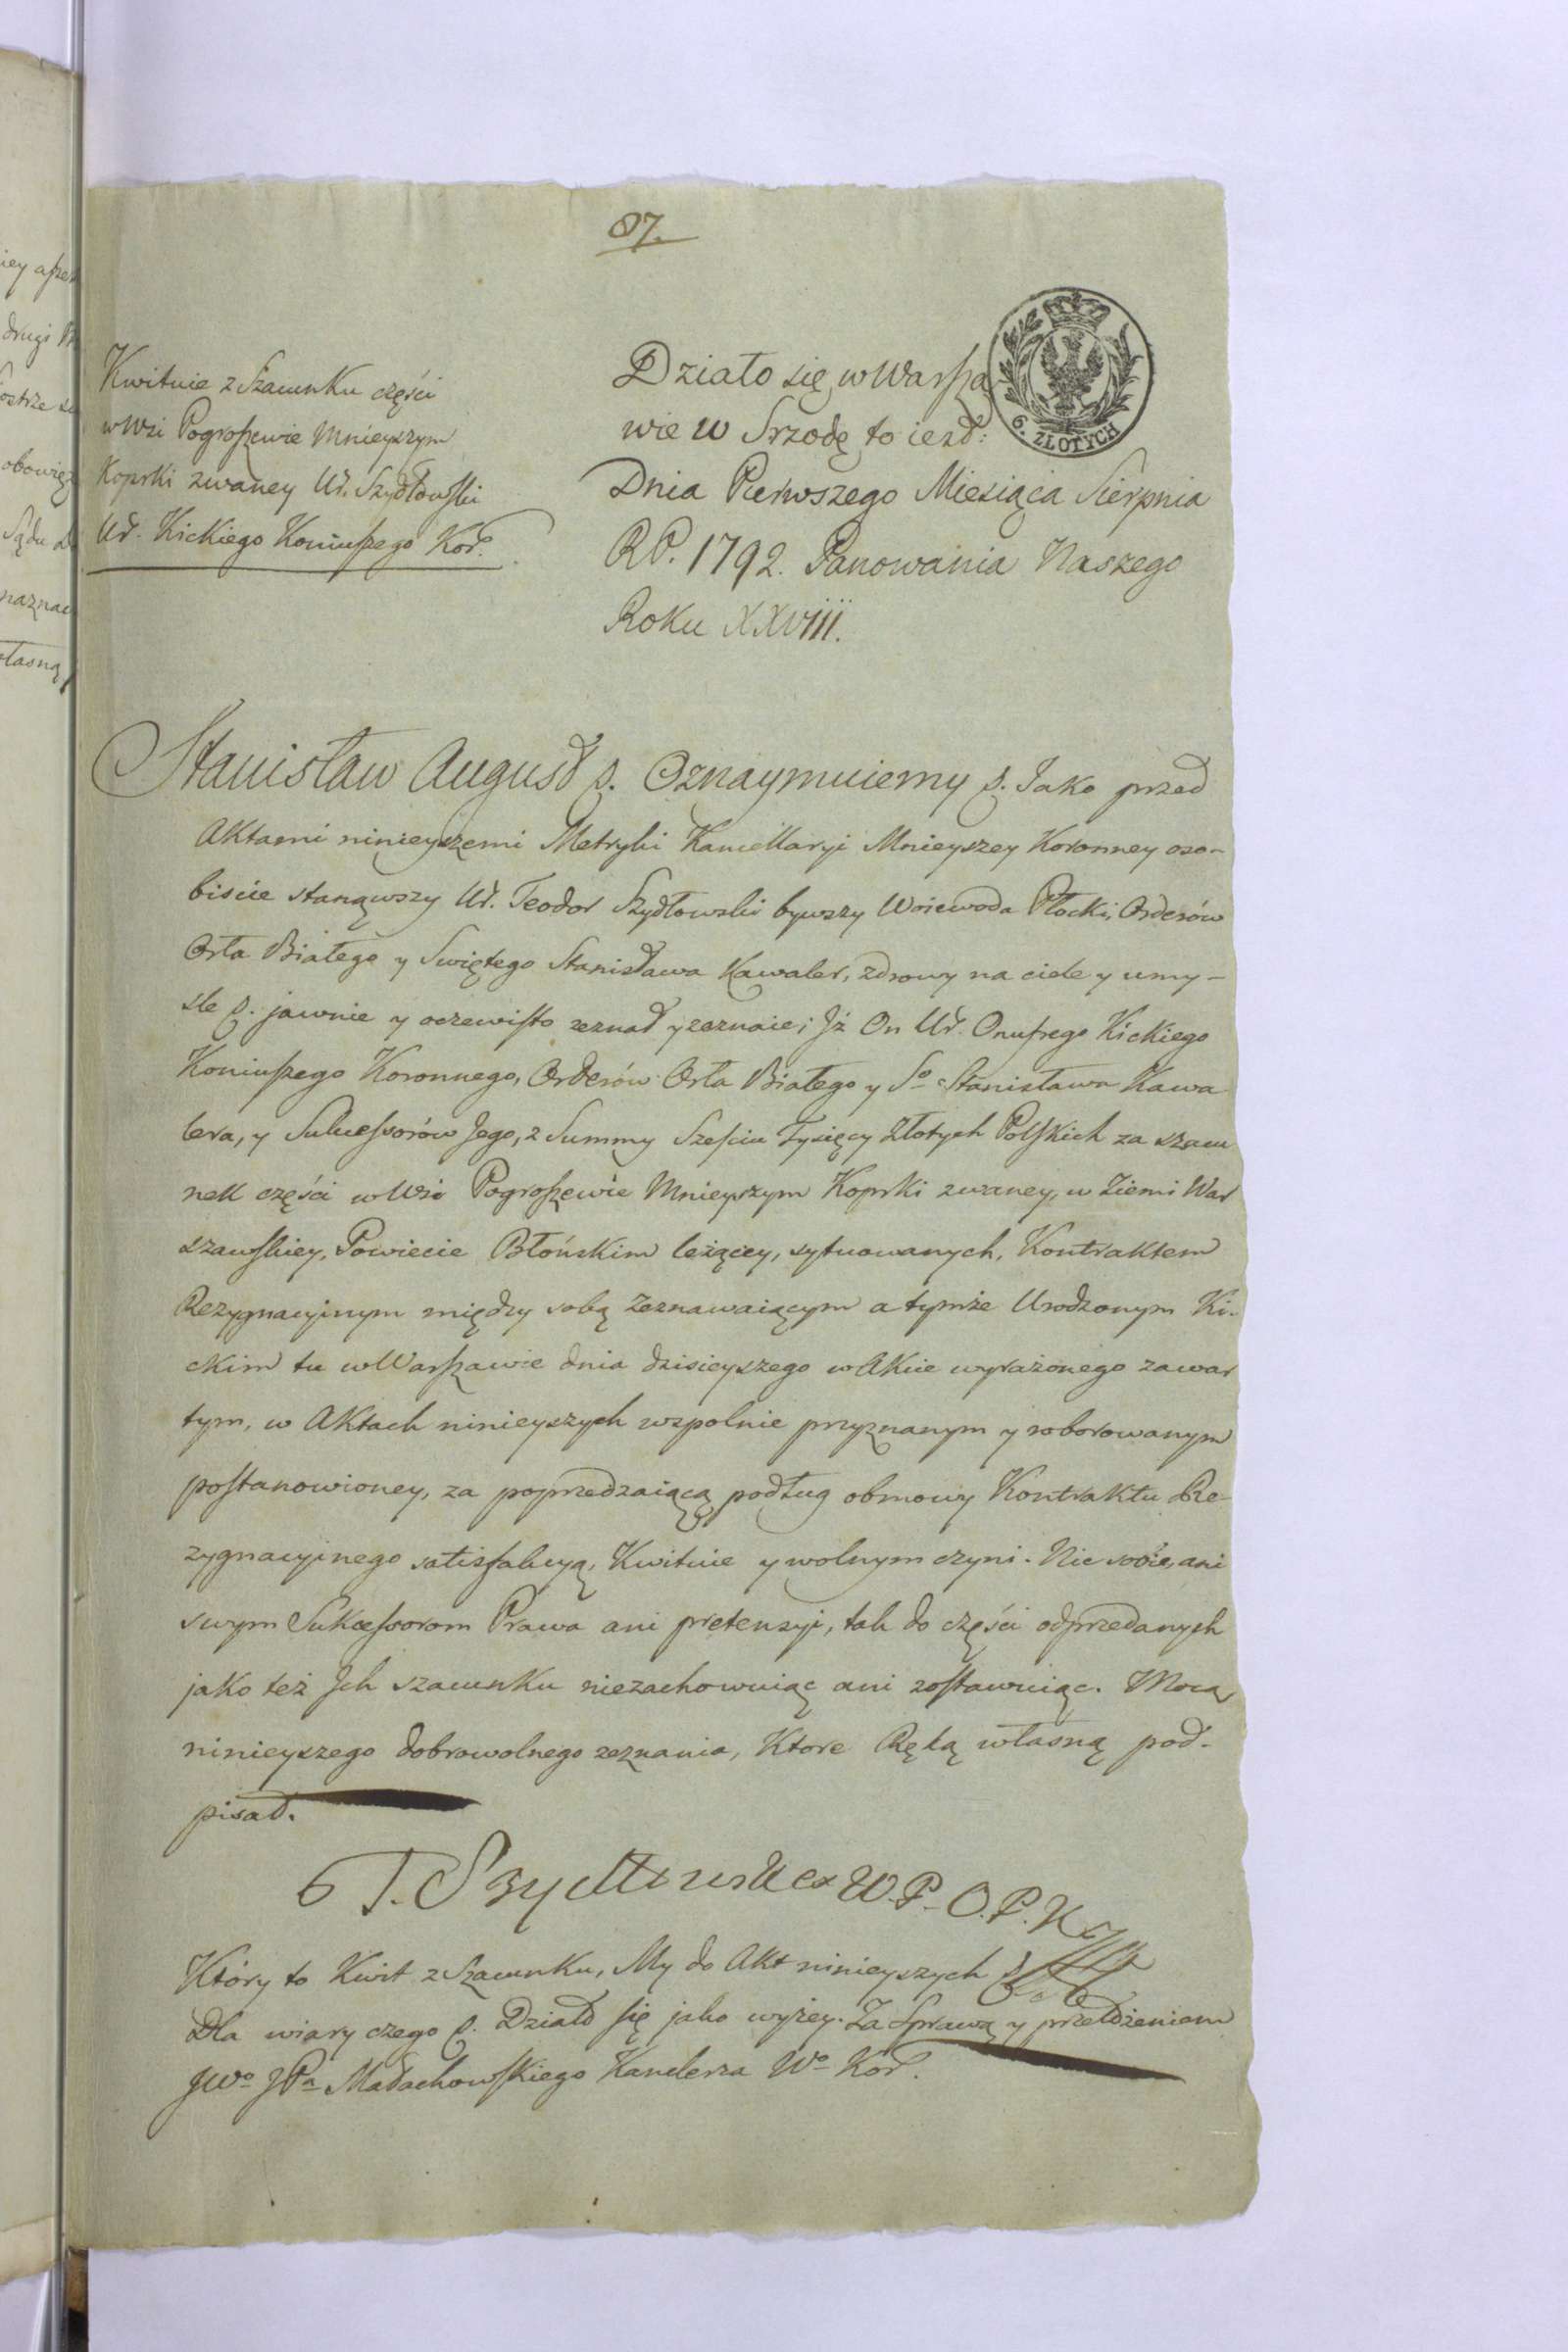 87.
Kwituie z Szacunku części
w Wsi Pogroszewie Mnieyszym
Koprki zwaney Ur. Szydłowski
Ur. Kickiego Koniuszego Kor.
Działo się w Warsza
wie w Srzodę to iest:
Dnia Pierwszego Miesiąca Sierpnia
RP. 1792. Panowania Naszego
Roku XXVIII.
6. ZŁOTYCH
Stanisław August p. Oznaymuiemy p. Jako przed
Aktami ninieyszemi Metryki Kancellaryi Mnieyszey Koronney oso-
biscie stanąwszy Ur. Teodor Szydłowski bywszy Woiewoda Płocki, Orderów
Orła Białego y Swiętego Stanisława Kawaler, zdrowy na ciele y umy-
sle p. jawnie y oczewisto zeznał y zeznaie; Iż On Ur. Onufrego Kickiego
Koniuszego Koronnego, Orderów Orła Białego y So Stanisława Kawa
lera, y Sukcessorów Jego, z Summy Sześciu Tysięcy Złotych Polskich za szacu
nek części w Wsi Pogroszewie Mnieyszym Koprki zwaney, w Ziemi War
szawskiey, Powiecie Błońskim leżącey, sytuowanych, Kontraktem
Rezygnacyinym między sobą Zeznawaiącym a tymże Urodzonym Ki-
ckim tu w Warszawie dnia dzisieyszego w Akcie wyrażonego zawar
tym, w Aktach ninieyszych wspolnie przyznanym y roborowanym
postanowioney, za poprzedzaiącą podług obmowy Kontraktu Re-
zygnacyinego satisfakcyą, Kwituie y wolnym czyni. Nic sobie, ani
swym Sukcessorom Prawa ani pretensyi, tak do części odprzedanych
jako też Ich szacunku niezachowuiąc ani zostawuiąc. Mocą
ninieyszego dobrowolnego zeznania, Ktore Ręką własną pod-
pisał.
T. Szydłowski ex W. P. O. P. K
Który to Kwit z Szacunku, My do Akt ninieyszych
Dla wiary czego p. Działo się jako wyżey. Za Sprawą y przełożeniem
JWo JPa Małachowskiego Kanclerza Wo Kor.
iey
drugi
obowięz
Sądu
naznac
własną